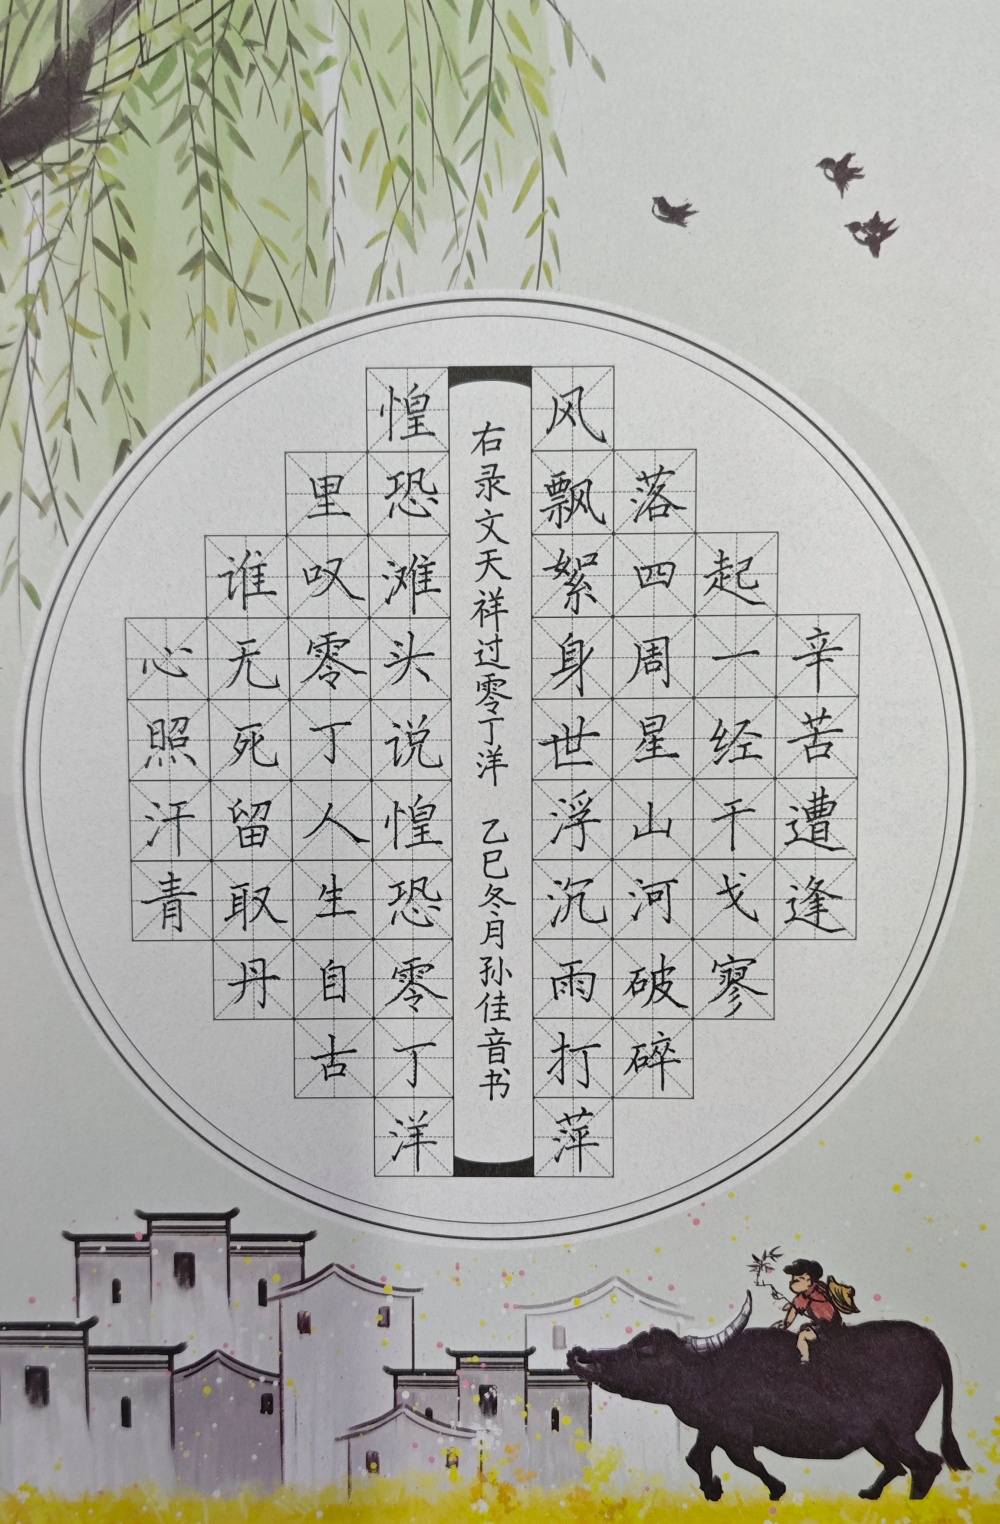 辛苦遭逢
起一经干戈寥
落四周星山河破碎
风飘絮身世浮沉雨打萍
惶恐滩头说惶恐零丁洋
里叹零丁人生自古
谁无死留取丹
心照汗青
右录文天祥过零丁洋 乙巳冬月孙佳音书